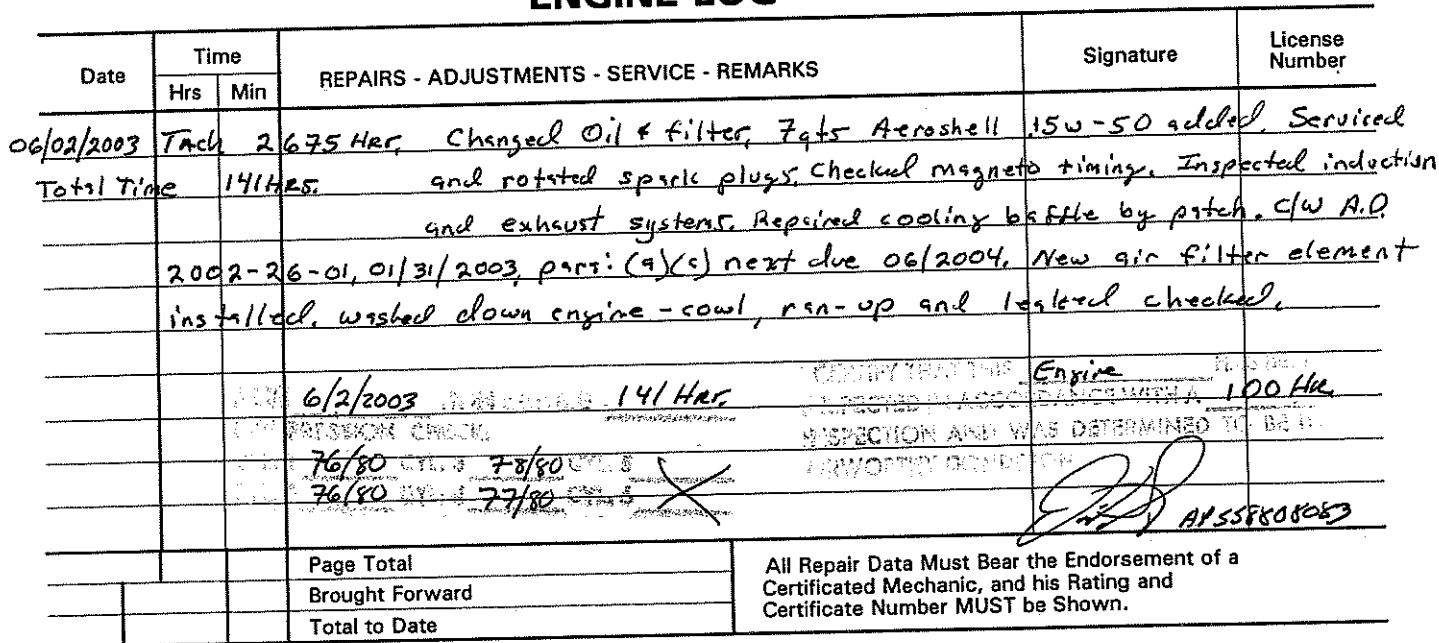 ENGINE LOG
Date Time REPAIRS - ADJUSTMENTS - SERVICE - REMARKS Signature License Number
Hrs Min
06/02/2003 Tach 2675 Hrs, Changed Oil & filter, 7qts Aeroshell 15w-50 added. Serviced
Total Time 141 Hrs. and rotated spark plugs. Checked magneto timing. Inspected induction
and exhaust systems. Repaired cooling baffle by patch. C/W A.D.
2002-26-01, 01/31/2003, part: (a)(c) next due 06/2004. New air filter element
installed. washed down engine - cowl, ran-up and leaked checked.
6/2/2003 141 Hrs.
COMPRESSION CHECK
76/80 CYL. 3 78/80 CYL. 5
76/80 CYL. 77/80 CYL.
CERTIFY THAT THIS Engine HAS BEEN
INSPECTED IN ACCORDANCE WITH A 100 Hr.
INSPECTION AND WAS DETERMINED TO BE IN
AIRWORTHY CONDITION
AP558808083
Page Total
Brought Forward
Total to Date
All Repair Data Must Bear the Endorsement of a
Certificated Mechanic, and his Rating and
Certificate Number MUST be Shown.